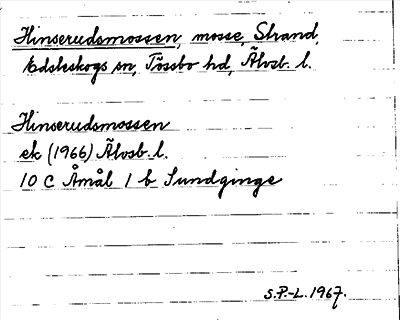 Hinserudsmossen, mosse, Strand,
Edsleskogs sn, Tössbo hd, Älvsb. l.
Hinserudsmossen
ek (1966) Älvsb. l.
10 C Åmål 1 b Sundginge
S.P.-L. 1967.